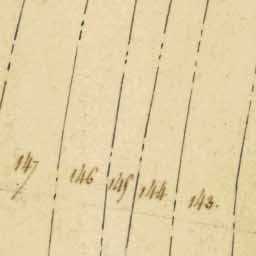 147 146 145 144 143.